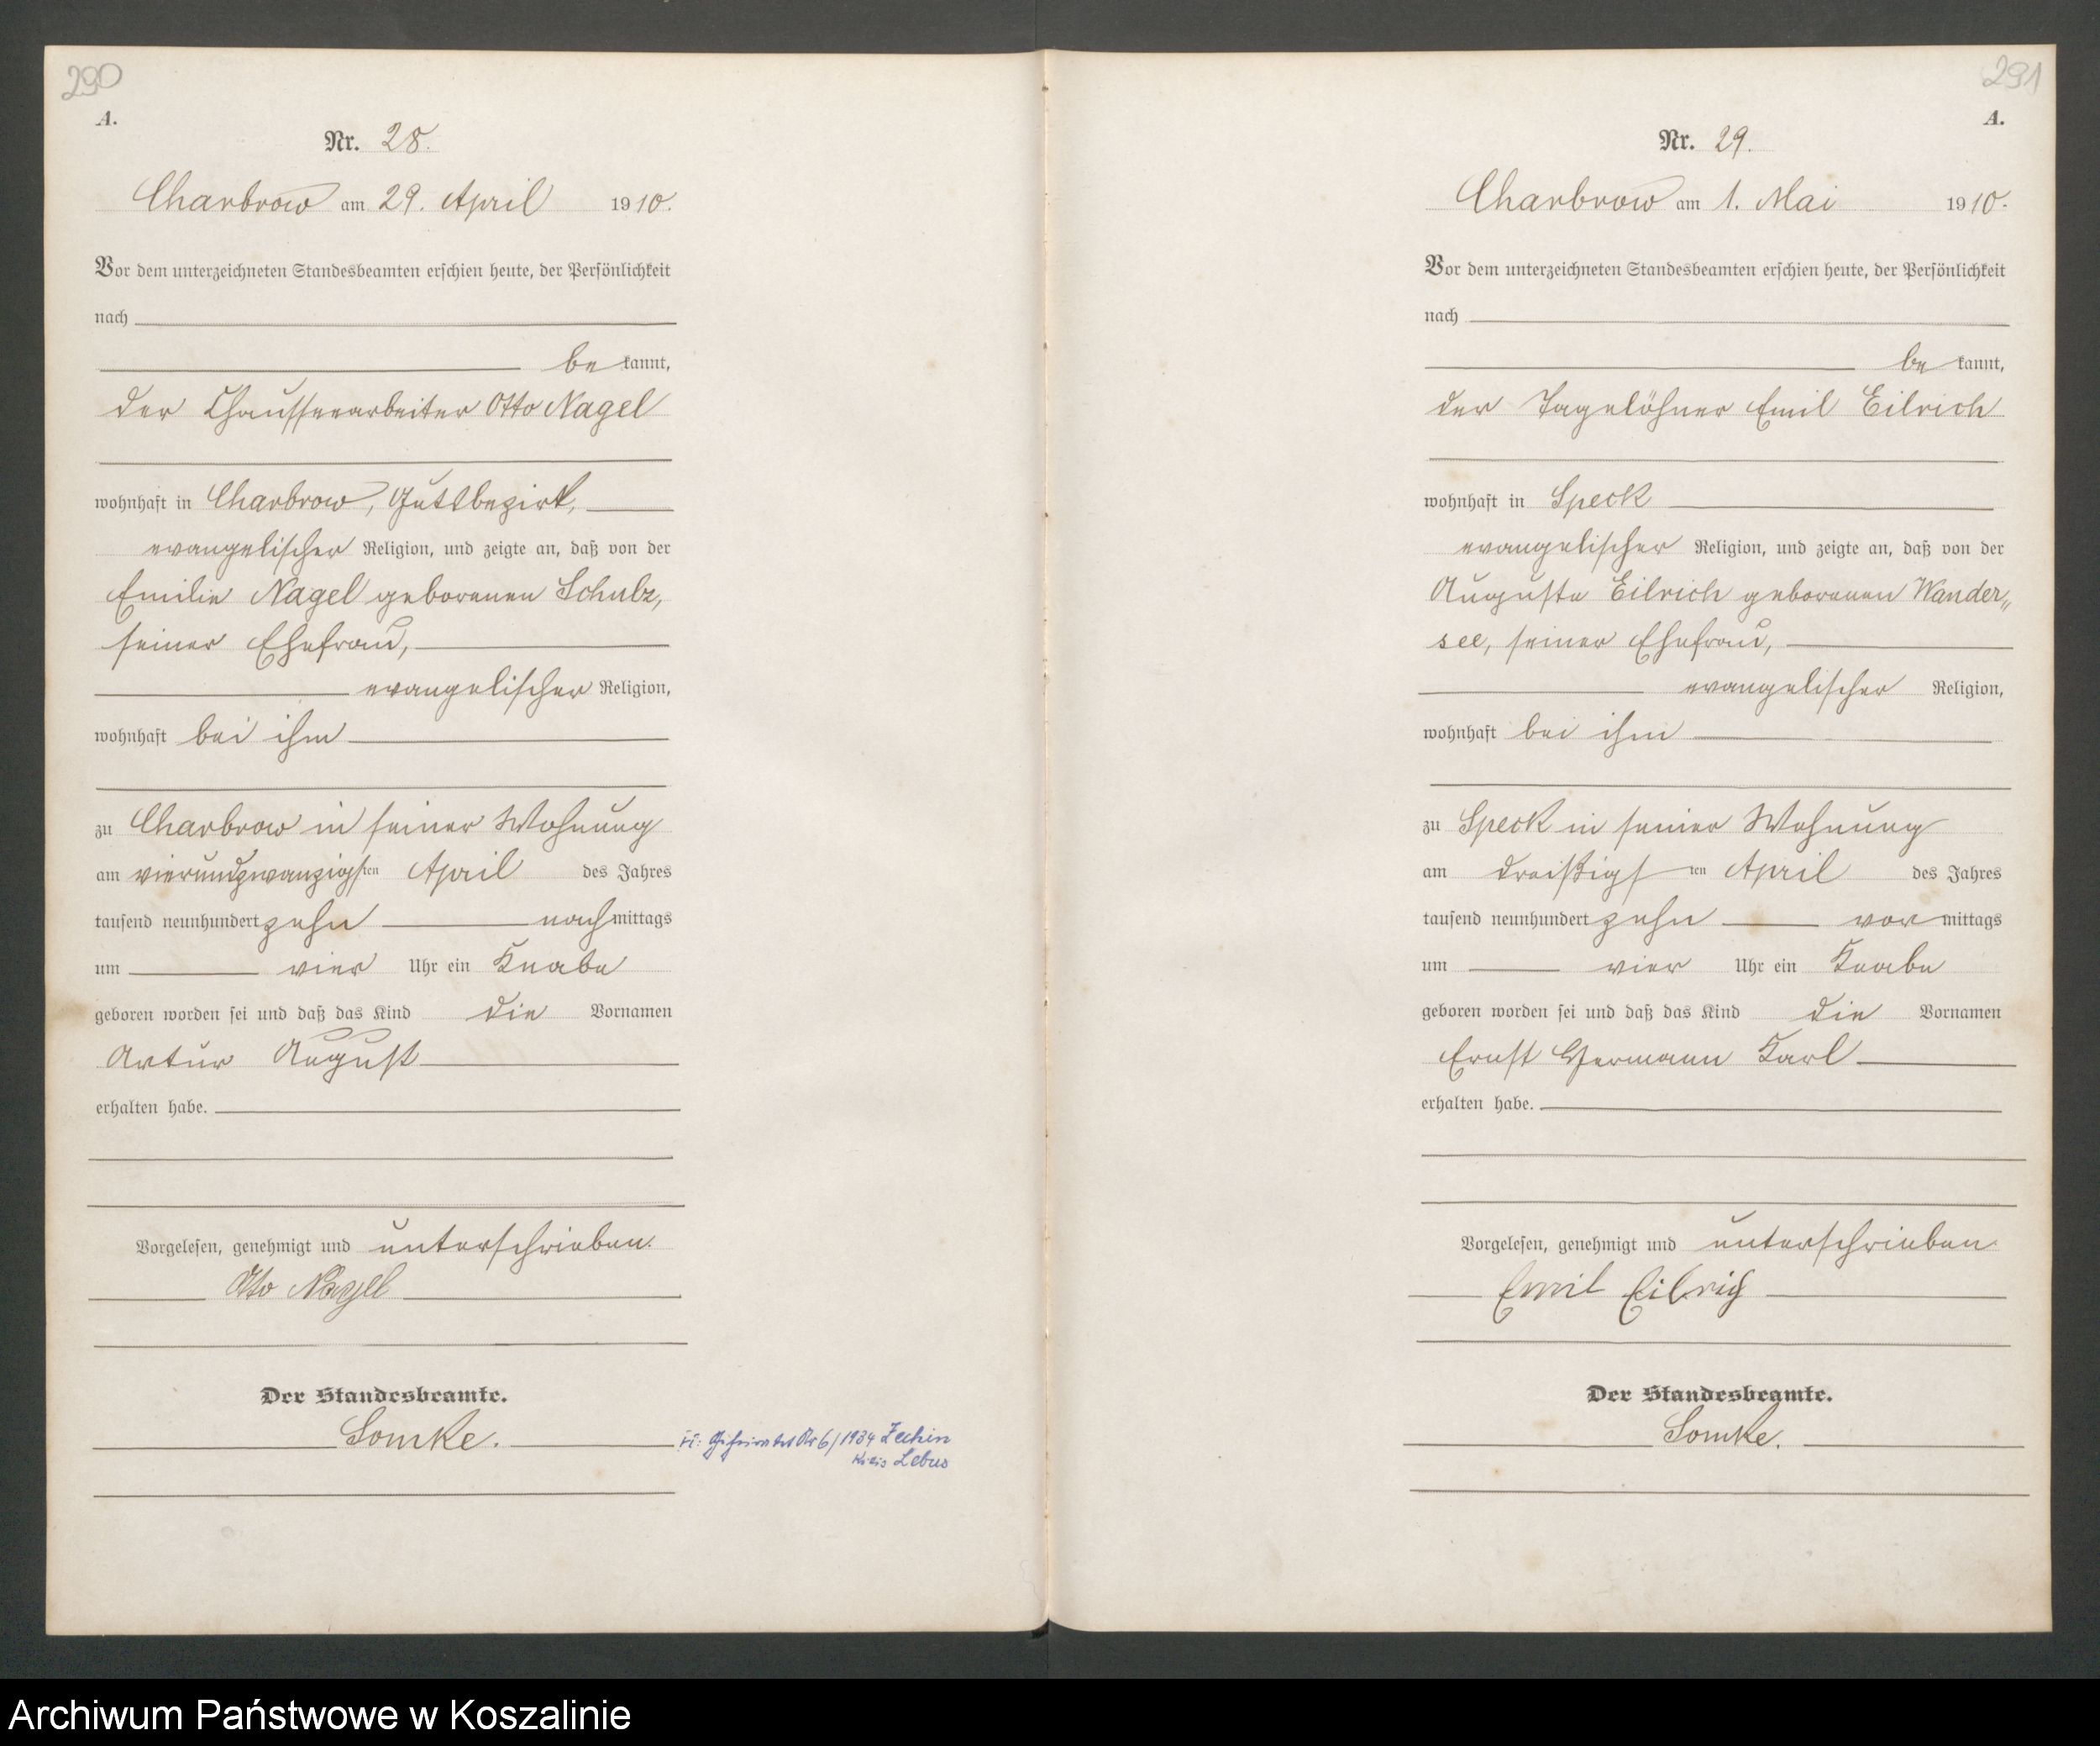 290
A.
Nr. 28.
Charbrow am 29. April 1910.
Vor dem unterzeichneten Standesbeamten erschien heute, der Persönlichkeit
nach
be kannt,
der Chausseearbeiter Otto Nagel
wohnhaft in Charbrow, Gutsbezirk,
evangelischer Religion, und zeigte an, daß von der
Emilie Nagel geborenen Schulz,
seiner Ehefrau,
evangelischer Religion,
wohnhaft bei ihm
zu Charbrow in seiner Wohnung
am vierundzwanzigsten April des Jahres
tausend neunhundert zehn nachmittags
um vier Uhr ein Knabe
geboren worden sei und daß das Kind die Vornamen
Artur August
erhalten habe.
Vorgelesen, genehmigt und unterschrieben.
Otto Nagel
Der Standesbeamte.
Somke.
Geheiratet Nr 6/1934 Zechin
Kreis Lebus
291
A.
Nr. 29.
Charbrow am 1. Mai 1910.
Vor dem unterzeichneten Standesbeamten erschien heute, der Persönlichkeit
nach
be kannt,
der Tagelöhner Emil Eilrich
wohnhaft in Speck
evangelischer Religion, und zeigte an, daß von der
Auguste Eilrich geborenen Wander„
see, seiner Ehefrau,
evangelischer Religion,
wohnhaft bei ihm
zu Speck in seiner Wohnung
am dreißigsten April des Jahres
tausend neunhundert zehn vor mittags
um vier Uhr ein Knabe
geboren worden sei und daß das Kind die Vornamen
Ernst Hermann Karl
erhalten habe.
Vorgelesen, genehmigt und unterschrieben
Emil Eilrich
Der Standesbeamte.
Somke.
Archiwum Państwowe w Koszalinie